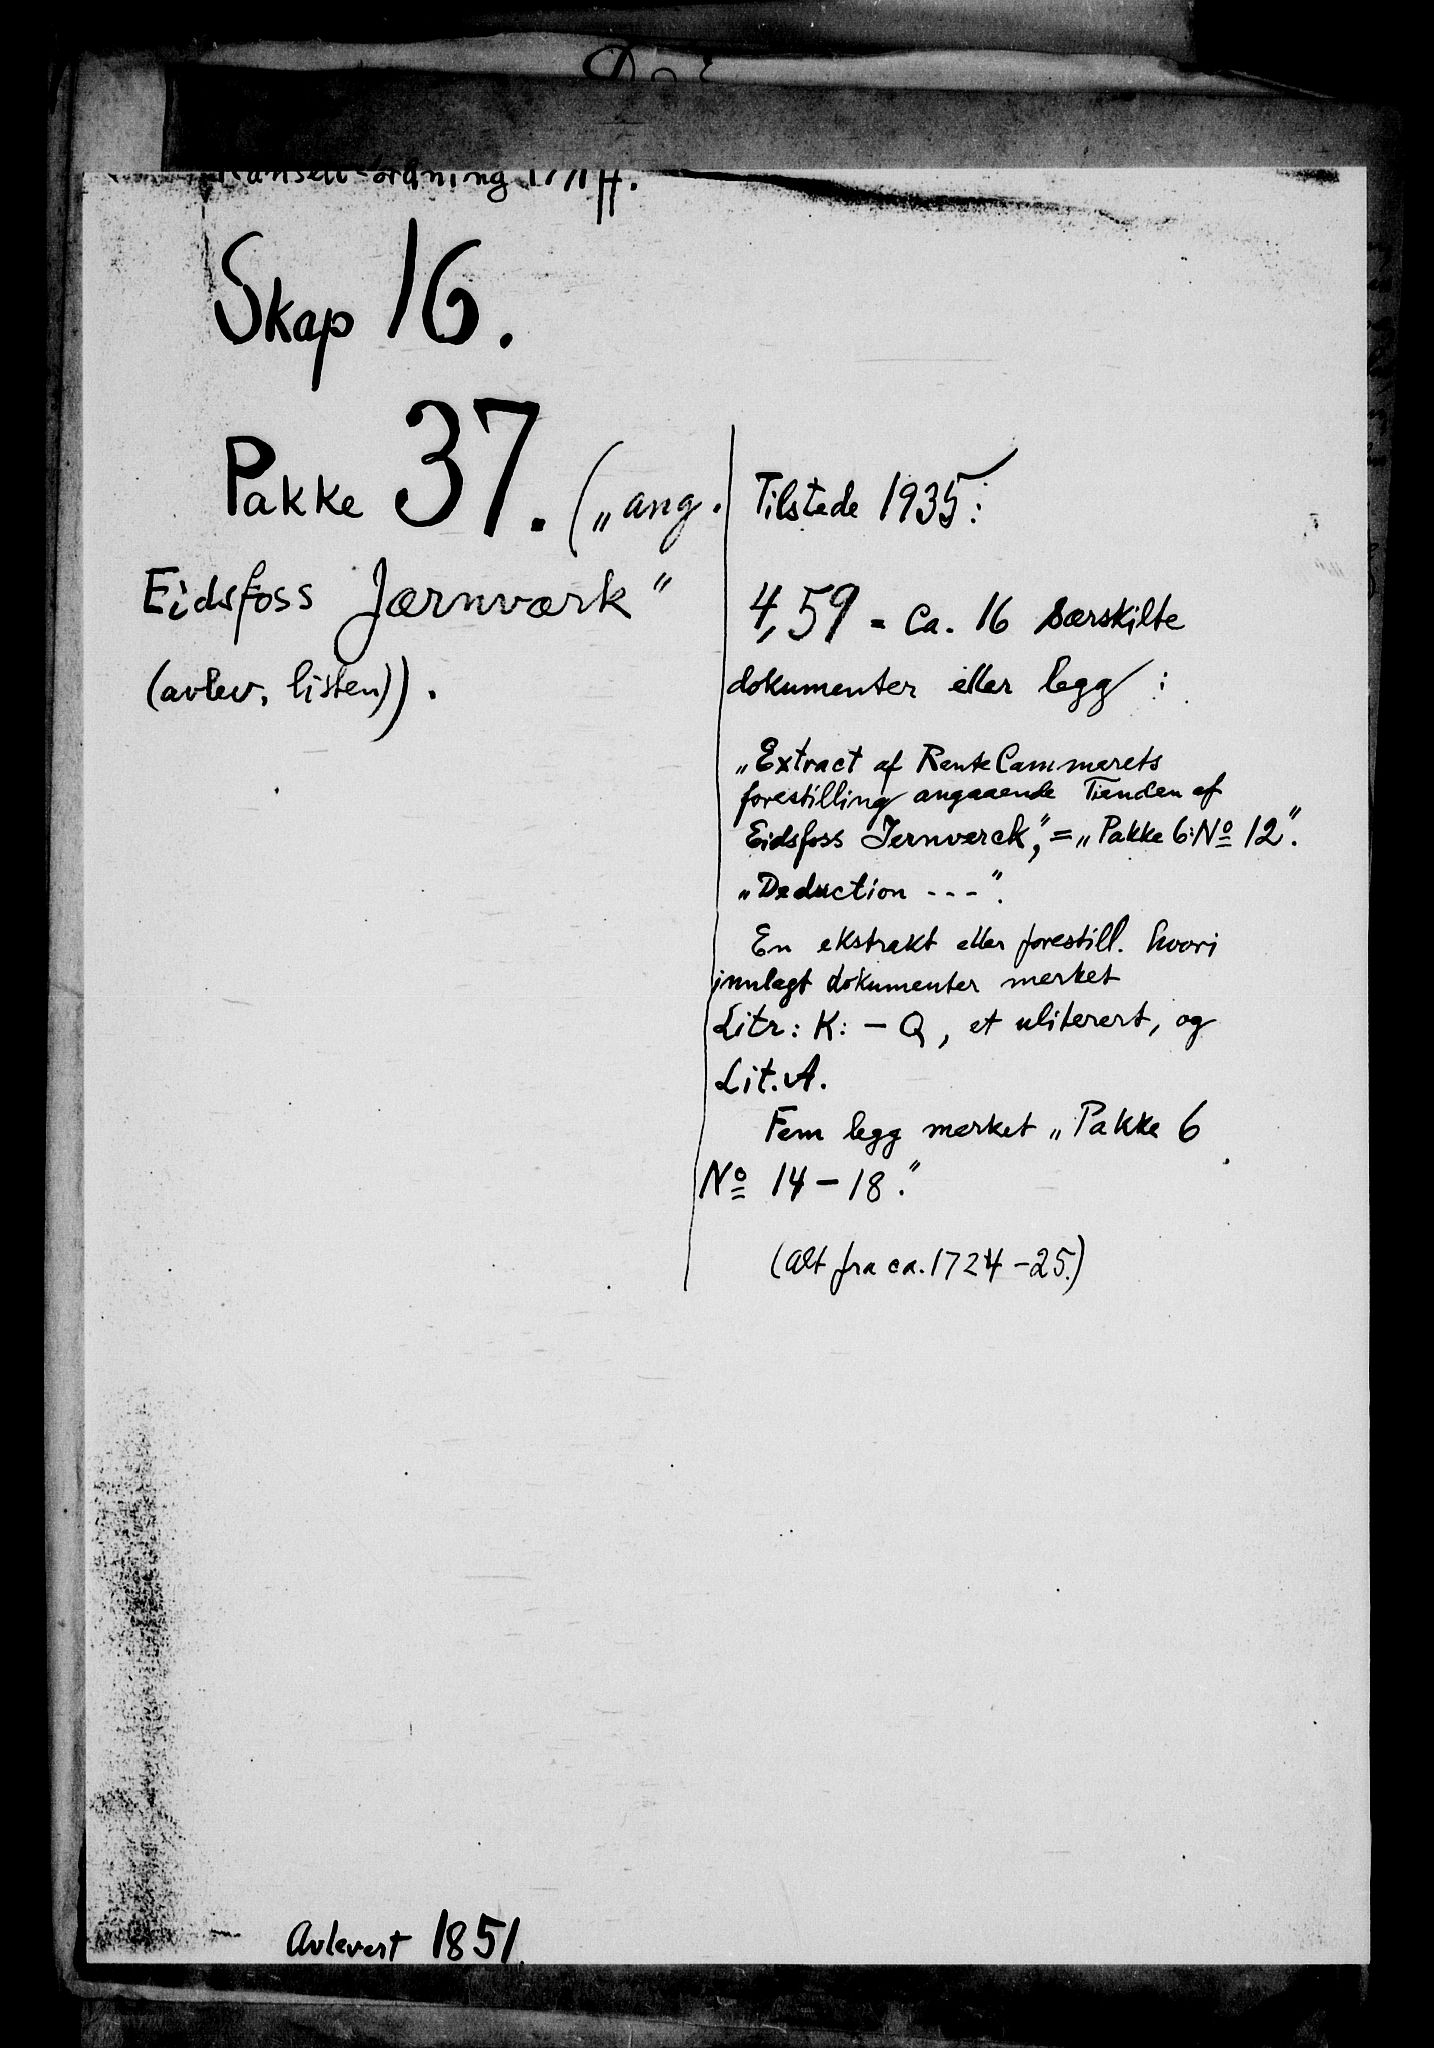 ordning
Skap 16.
Pakke 37. („ang.
Eidsfoss Jærnværk"
(avlev. listen)).
Tilstede 1935:
4,59 = ca. 16 særskilte
dokumenter eller legg:
„Extract af RenteCammerets
forestilling angaaende Tienden af
Eidsfoss Jernverck", = „Pakke 6: No 12".
„Deduction - - - ".
En ekstrakt eller forestill. hvori
innlagt dokumenter merket
Litr: K: - Q, et uliterert, og
Lit. A.
Fem legg merket „Pakke 6
No 14 - 18."
(alt fra ca. 1724 - 25.)
Avlevert 1851.